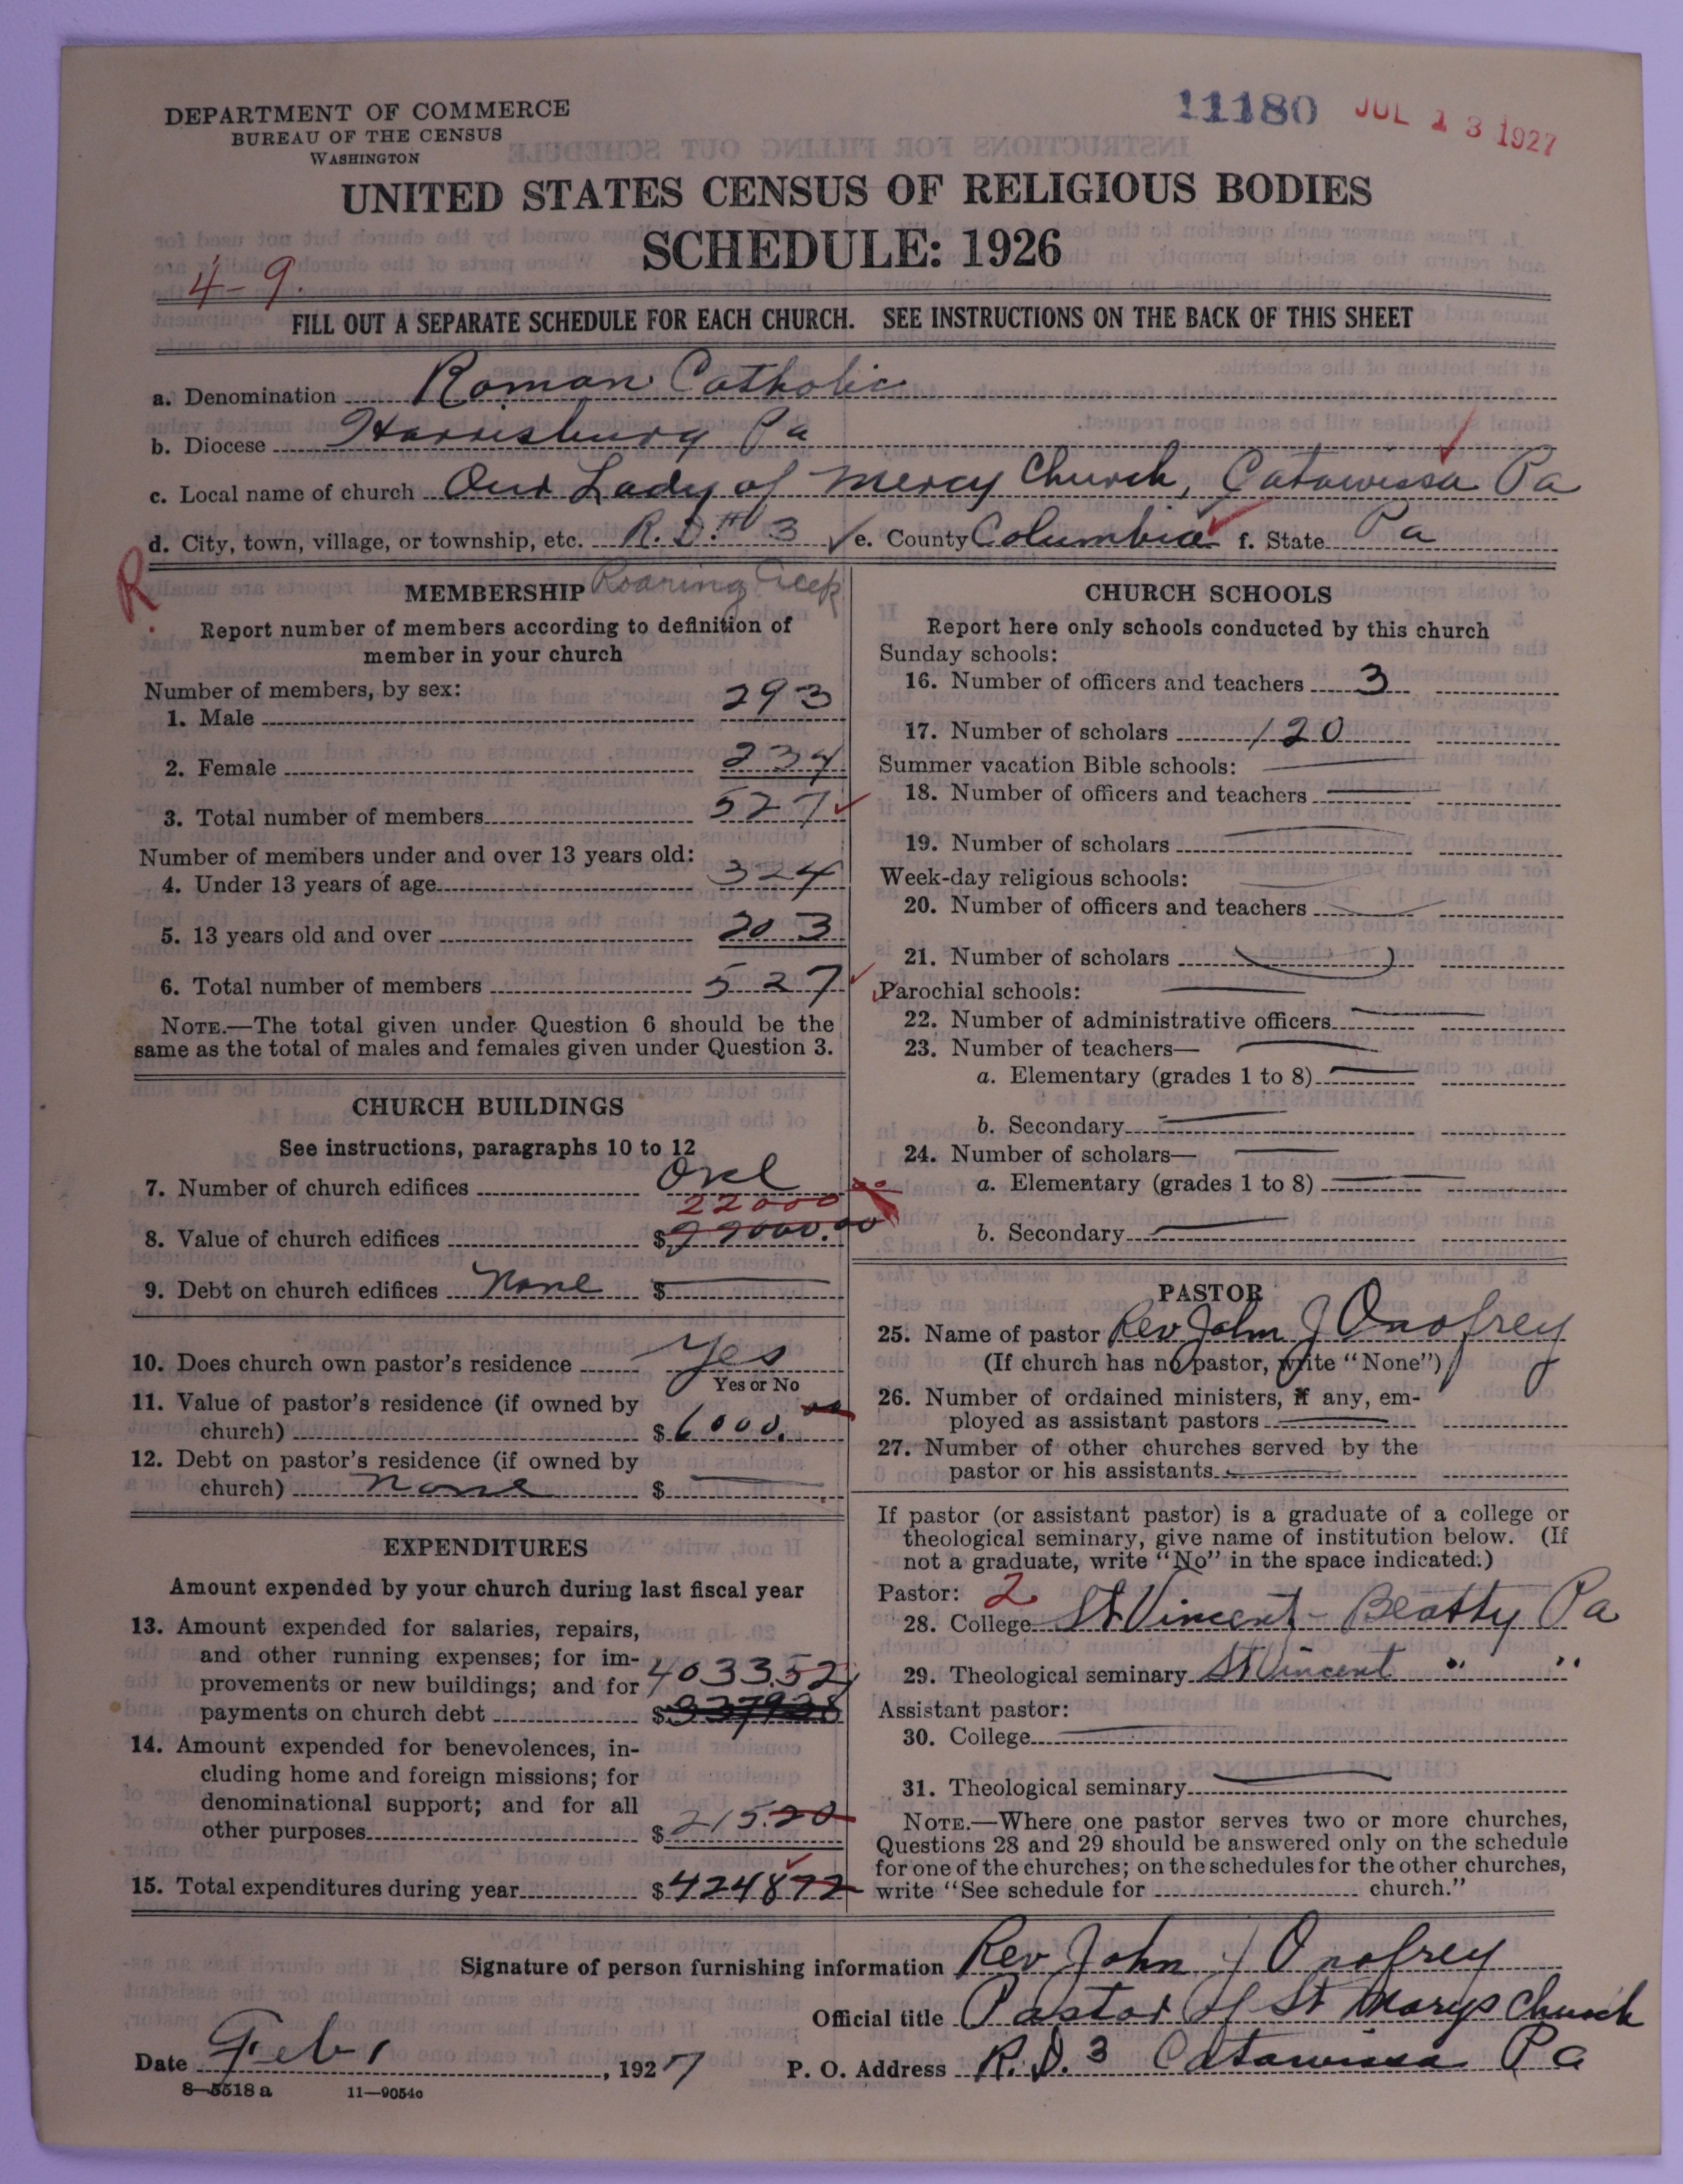 DEPARTMENT OF COMMERCE
BUREAU OF THE CENSUS
WASHINGTON
11180 JUL 13 1927
UNITED STATES CENSUS OF RELIGIOUS BODIES
SCHEDULE: 1926
4-9.
FILL OUT A SEPARATE SCHEDULE FOR EACH CHURCH. SEE INSTRUCTIONS ON THE BACK OF THIS SHEET
a. Denomination Roman Catholic
b. Diocese Harrisburg Pa
c. Local name of church Our Lady of Mercy Church, Catawissa Pa
d. City, town, village, or township, etc. R.D. # 3 e. County Columbia f. State Pa
R
MEMBERSHIP Roaring Creek
Report number of members according to definition of
member in your church
Number of members, by sex:
1. Male 293
2. Female 234
3. Total number of members 527
Number of members under and over 13 years old:
4. Under 13 years of age 324
5. 13 years old and over 203
6. Total number of members 527
NOTE.—The total given under Question 6 should be the
same as the total of males and females given under Question 3.
CHURCH BUILDINGS
See instructions, paragraphs 10 to 12
7. Number of church edifices One
22000
8. Value of church edifices $ 22000.00
9. Debt on church edifices None $
10. Does church own pastor's residence Yes
Yes or No
11. Value of pastor's residence (if owned by
church) $ 6000.00
12. Debt on pastor's residence (if owned by
church) None $
EXPENDITURES
Amount expended by your church during last fiscal year
13. Amount expended for salaries, repairs,
and other running expenses; for im-
provements or new buildings; and for 4033.52
payments on church debt $
14. Amount expended for benevolences, in-
cluding home and foreign missions; for
denominational support; and for all
other purposes $ 215.20
15. Total expenditures during year $ 4248 72
CHURCH SCHOOLS
Report here only schools conducted by this church
Sunday schools:
16. Number of officers and teachers 3
17. Number of scholars 120
Summer vacation Bible schools:
18. Number of officers and teachers
19. Number of scholars
Week-day religious schools:
20. Number of officers and teachers
21. Number of scholars
Parochial schools:
22. Number of administrative officers
23. Number of teachers—
a. Elementary (grades 1 to 8)
b. Secondary
24. Number of scholars—
a. Elementary (grades 1 to 8)
b. Secondary
PASTOR
25. Name of pastor Rev John J Onofrey
(If church has no pastor, write "None")
26. Number of ordained ministers, if any, em-
ployed as assistant pastors
27. Number of other churches served by the
pastor or his assistants
If pastor (or assistant pastor) is a graduate of a college or
theological seminary, give name of institution below. (If
not a graduate, write "No" in the space indicated.)
Pastor: 2
28. College St Vincent - Beatty Pa
29. Theological seminary St Vincent " "
Assistant pastor:
30. College
31. Theological seminary
NOTE.—Where one pastor serves two or more churches,
Questions 28 and 29 should be answered only on the schedule
for one of the churches; on the schedules for the other churches,
write "See schedule for church."
Signature of person furnishing information Rev John J Onofrey
Official title Pastor of St Marys Church
Date Feb 1, 1927 P. O. Address R.D. 3 Catawissa Pa
8-5518 a 11-9054c